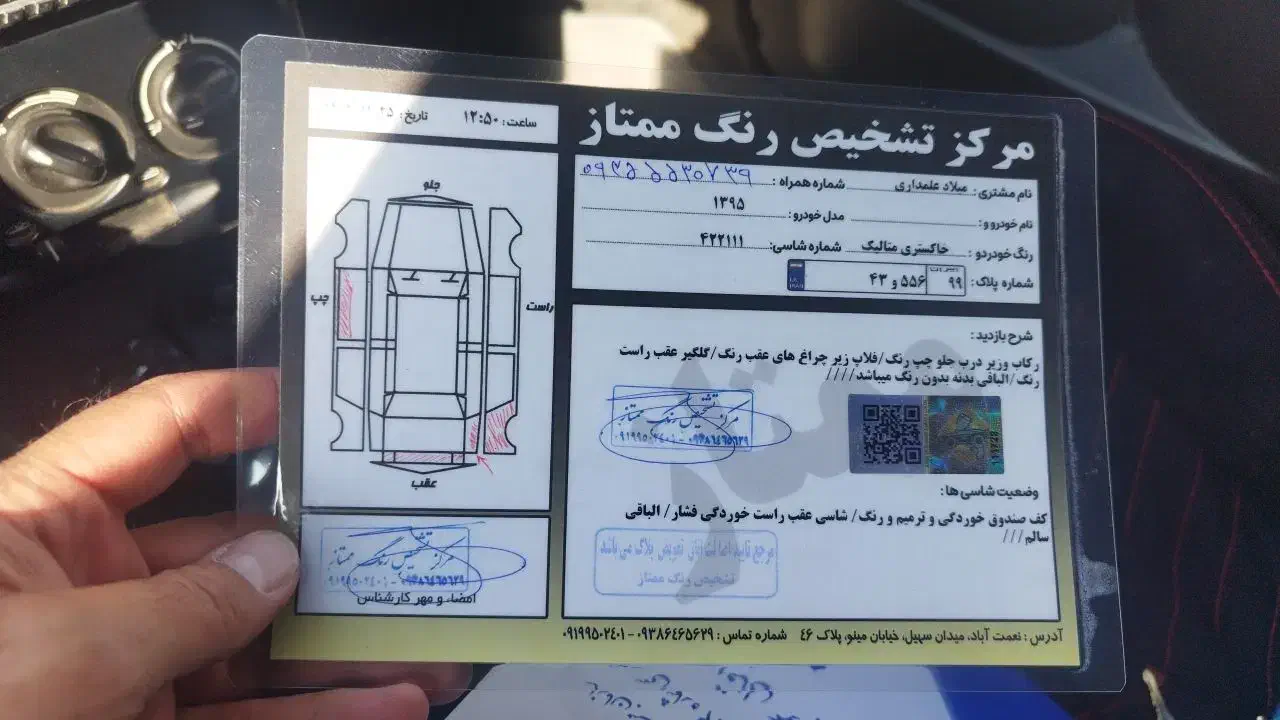 مرکز تشخیص رنگ ممتاز
ساعت: ۱۲:۵۰ تاریخ:
نام مشتری: میلاد علمداری شماره همراه:
نام خودرو و: مدل خودرو: ۱۳۹۵
رنگ خودردو: خاکستری متالیک شماره شاسی: ۴۲۲۱۱۱
شماره پلاک: ۹۹ ۵۵۶ و ۴۳
جلو
چپ
راست
عقب
شرح بازدید:
رکاب وزیر درب جلو چپ رنگ/فلاپ زیر چراغ های عقب رنگ/گلگیر عقب راست
رنگ/الباقی بدنه بدون رنگ میباشد////
مرکز تشخیص رنگ ممتاز
۰۹۳۸۶۴۶۵۶۲۹ - ۰۹۱۹۹۵۰۲۴۰۱
وضعیت شاسی ها:
کف صندوق خوردگی و ترمیم و رنگ/ شاسی عقب راست خوردگی فشار/ الباقی
سالم///
تشخیص رنگ ممتاز
مرکز تشخیص رنگ ممتاز
امضاء و مهر کارشناس
آدرس: نعمت آباد، میدان سهیل، خیابان مینو، پلاک ۴۶ شماره تماس: ۰۹۳۸۶۴۶۵۶۲۹ - ۰۹۱۹۹۵۰۲۴۰۱